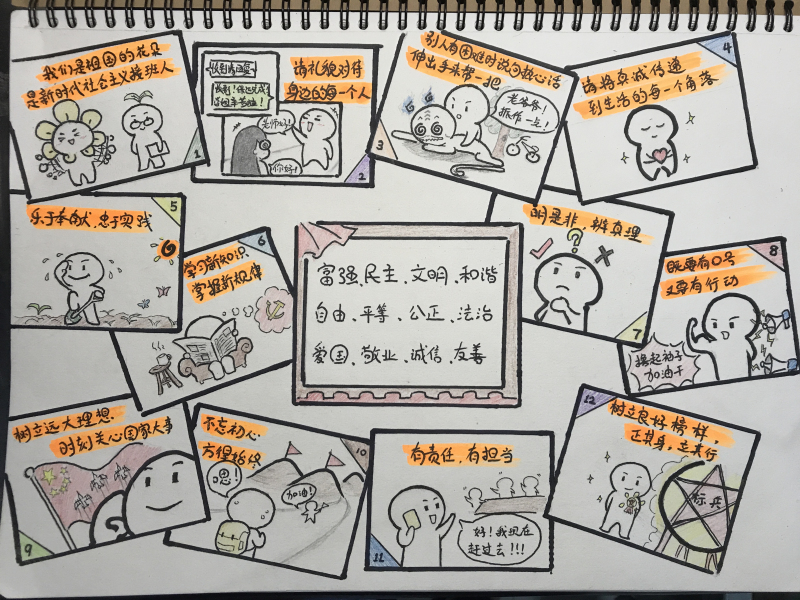 我们是祖国的花朵
是新时代社会主义接班人
1
请礼貌对待
身边的每一个人
老师好!
你好!
2
别人有困难时说句热心话
伸出手来帮一把
老爷爷!
振作一点!
3
4
请将真诚传递
到生活的每一个角落
5
乐于奉献,忠于实践
6
学习新知识
掌握新规律
富强、民主、文明、和谐
自由、平等、公正、法治
爱国、敬业、诚信、友善
明是非,辨真理
?
7
8
既要有口号
又要有行动
撸起袖子
加油干
树立远大理想
时刻关心国家大事
9
不忘初心
方得始终
10
嗯!
加油!
有责任,有担当
好!我现在
赶过去!!!
11
12
树立良好榜样,
正其身,立其行
标兵